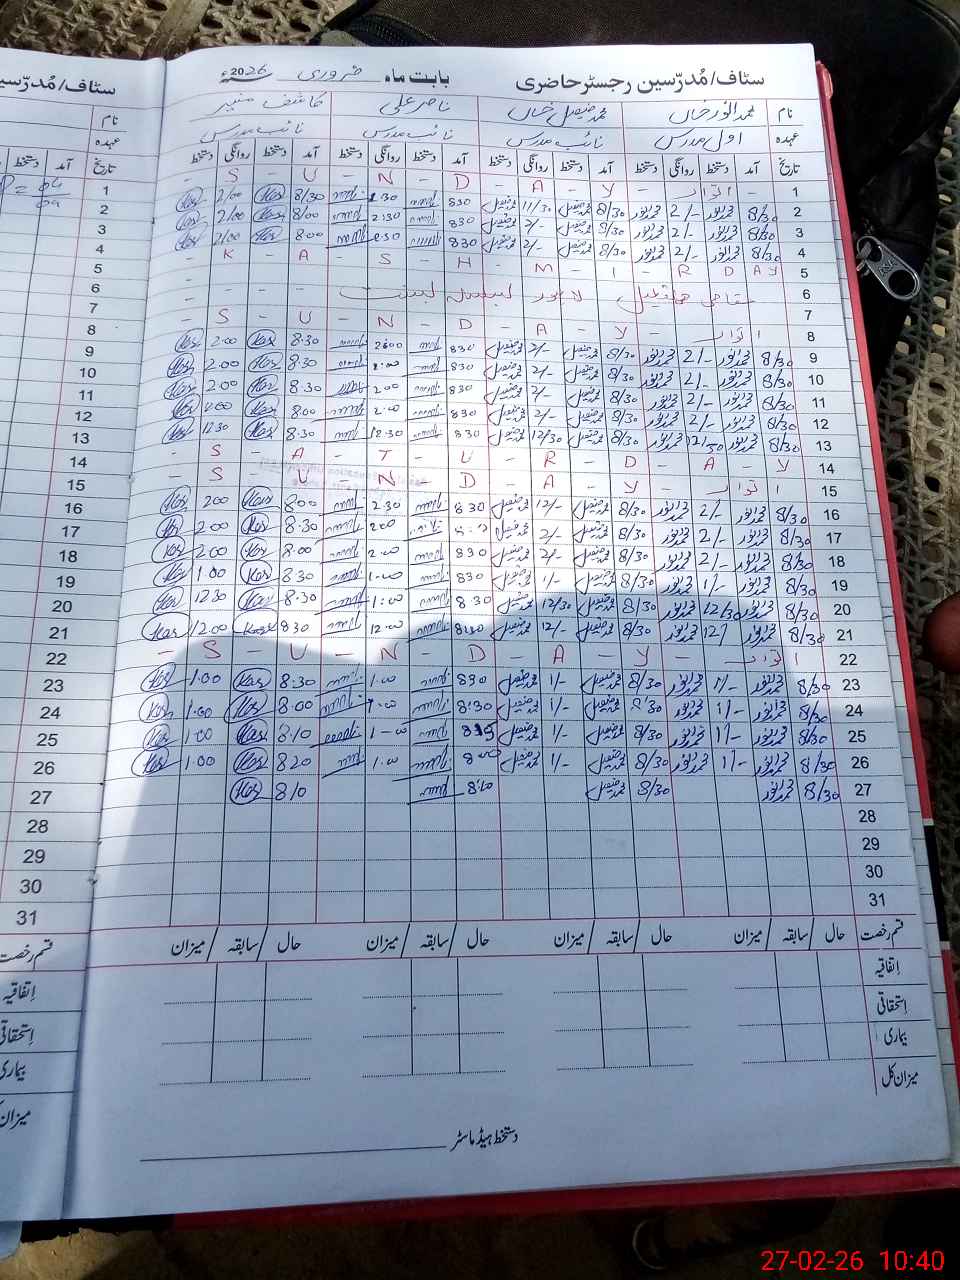 سٹاف/مُدرّسین رجسٹر حاضری بابت ماہ فروری 2026ء
نام محمد انور خاں محمد فیصل خاں ناصر علی کاشف منیر
عہدہ اول مدرس نائب مدرس نائب مدرس نائب مدرس
تاریخ آمد دستخط روانگی دستخط آمد دستخط روانگی دستخط آمد دستخط روانگی دستخط آمد دستخط روانگی دستخط
1 اتوار - S - U - N - D - A - Y -
2 8/30 محمد انور 2/- محمد انور 8/30 محمد فیصل 11/30 محمد فیصل 830 1.30 8/30 Kas 2/00 Kas
3 8/30 محمد انور 2/- محمد انور 8/30 محمد فیصل 2/- محمد فیصل 830 2:30 8/00 Kas 2/00 Kas
4 8/30 محمد انور 2/- محمد انور 8/30 محمد فیصل 2/- محمد فیصل 830 8.00 Kas 2/00 Kas
5 - K - A - S - H - M - I - R DAY
6 مقامی تعطیل لاہور
7
8 اتوار - S - U - N - D - A - Y -
9 8/30 محمد انور 2/- محمد انور 8/30 محمد فیصل 2/- محمد فیصل 830 2:00 8.30 Kas 2.00 Kas
10 8/30 محمد انور 2/- محمد انور 8/30 محمد فیصل 2/- محمد فیصل 830 2.00 8.30 Kas 2.00 Kas
11 8/30 محمد انور 2/- محمد انور 8/30 محمد فیصل 2/- محمد فیصل 830 2.00 8.30 Kas 2.00 Kas
12 8/30 محمد انور 2/- محمد انور 8/30 محمد فیصل 2/- محمد فیصل 830 2.00 8.00 Kas 2.00 Kas
13 8/30 محمد انور 12/30 محمد انور 8/30 محمد فیصل 12/30 محمد فیصل 830 12.30 8.30 Kas 12.30 Kas
14 - S - A - T - U - R - D - A - Y
15 اتوار - S - U - N - D - A - Y -
16 8/30 محمد انور 2/- محمد انور 8/30 محمد فیصل 12/- محمد فیصل 830 2.30 8.00 Kas 2.00 Kas
17 8/30 محمد انور 2/- محمد انور 8/30 محمد فیصل 2/- محمد فیصل 2.00 8.30 Kas 2.00 Kas
18 8/30 محمد انور 2/- محمد انور 8/30 محمد فیصل 2/- محمد فیصل 830 2.00 8.00 Kas 2.00 Kas
19 8/30 محمد انور 1/- محمد انور 8/30 محمد فیصل 1/- محمد فیصل 830 1.00 8.30 Kas 1.00 Kas
20 8/30 محمد انور 12/30 محمد انور 8/30 محمد فیصل 12/30 محمد فیصل 830 1:00 8.30 Kas 12.30 Kas
21 8/30 محمد انور 12/ محمد انور 8/30 محمد فیصل 12/- محمد فیصل 8:30 12.00 8.30 Kas 12.00 Kas
22 اتوار - S - U - N - D - A - Y -
23 8/30 محمد انور 1/- محمد انور 8/30 محمد فیصل 1/- محمد فیصل 830 1.00 8.30 Kas 1.00 Kas
24 8/30 محمد انور 1/- محمد انور 8/30 محمد فیصل 1/- محمد فیصل 8:30 1.00 8.00 Kas 1.00 Kas
25 8/30 محمد انور 1/- محمد انور 8/30 محمد فیصل 1/- محمد فیصل 835 1-00 8.10 Kas 1.00 Kas
26 8/30 محمد انور 1/- محمد انور 8/30 محمد فیصل 1/- محمد فیصل 1.00 8.20 Kas 1.00 Kas
27 8/30 محمد انور 8/30 محمد فیصل 8:10 8.10 Kas
28
29
30
31
قسم رخصت حال / سابقہ / میزان حال / سابقہ / میزان حال / سابقہ / میزان حال / سابقہ / میزان
اِتفاقیہ
اِستحقاقی
بیماری
میزان کل
دستخط ہیڈ ماسٹر
سٹاف/مُدرّسین
نام
عہدہ
تاریخ آمد دستخط
1
2
3
4
5
6
7
8
9
10
11
12
13
14
15
16
17
18
19
20
21
22
23
24
25
26
27
28
29
30
31
قسم رخصت
اِتفاقیہ
اِستحقاقی
بیماری
میزان
27-02-26 10:40